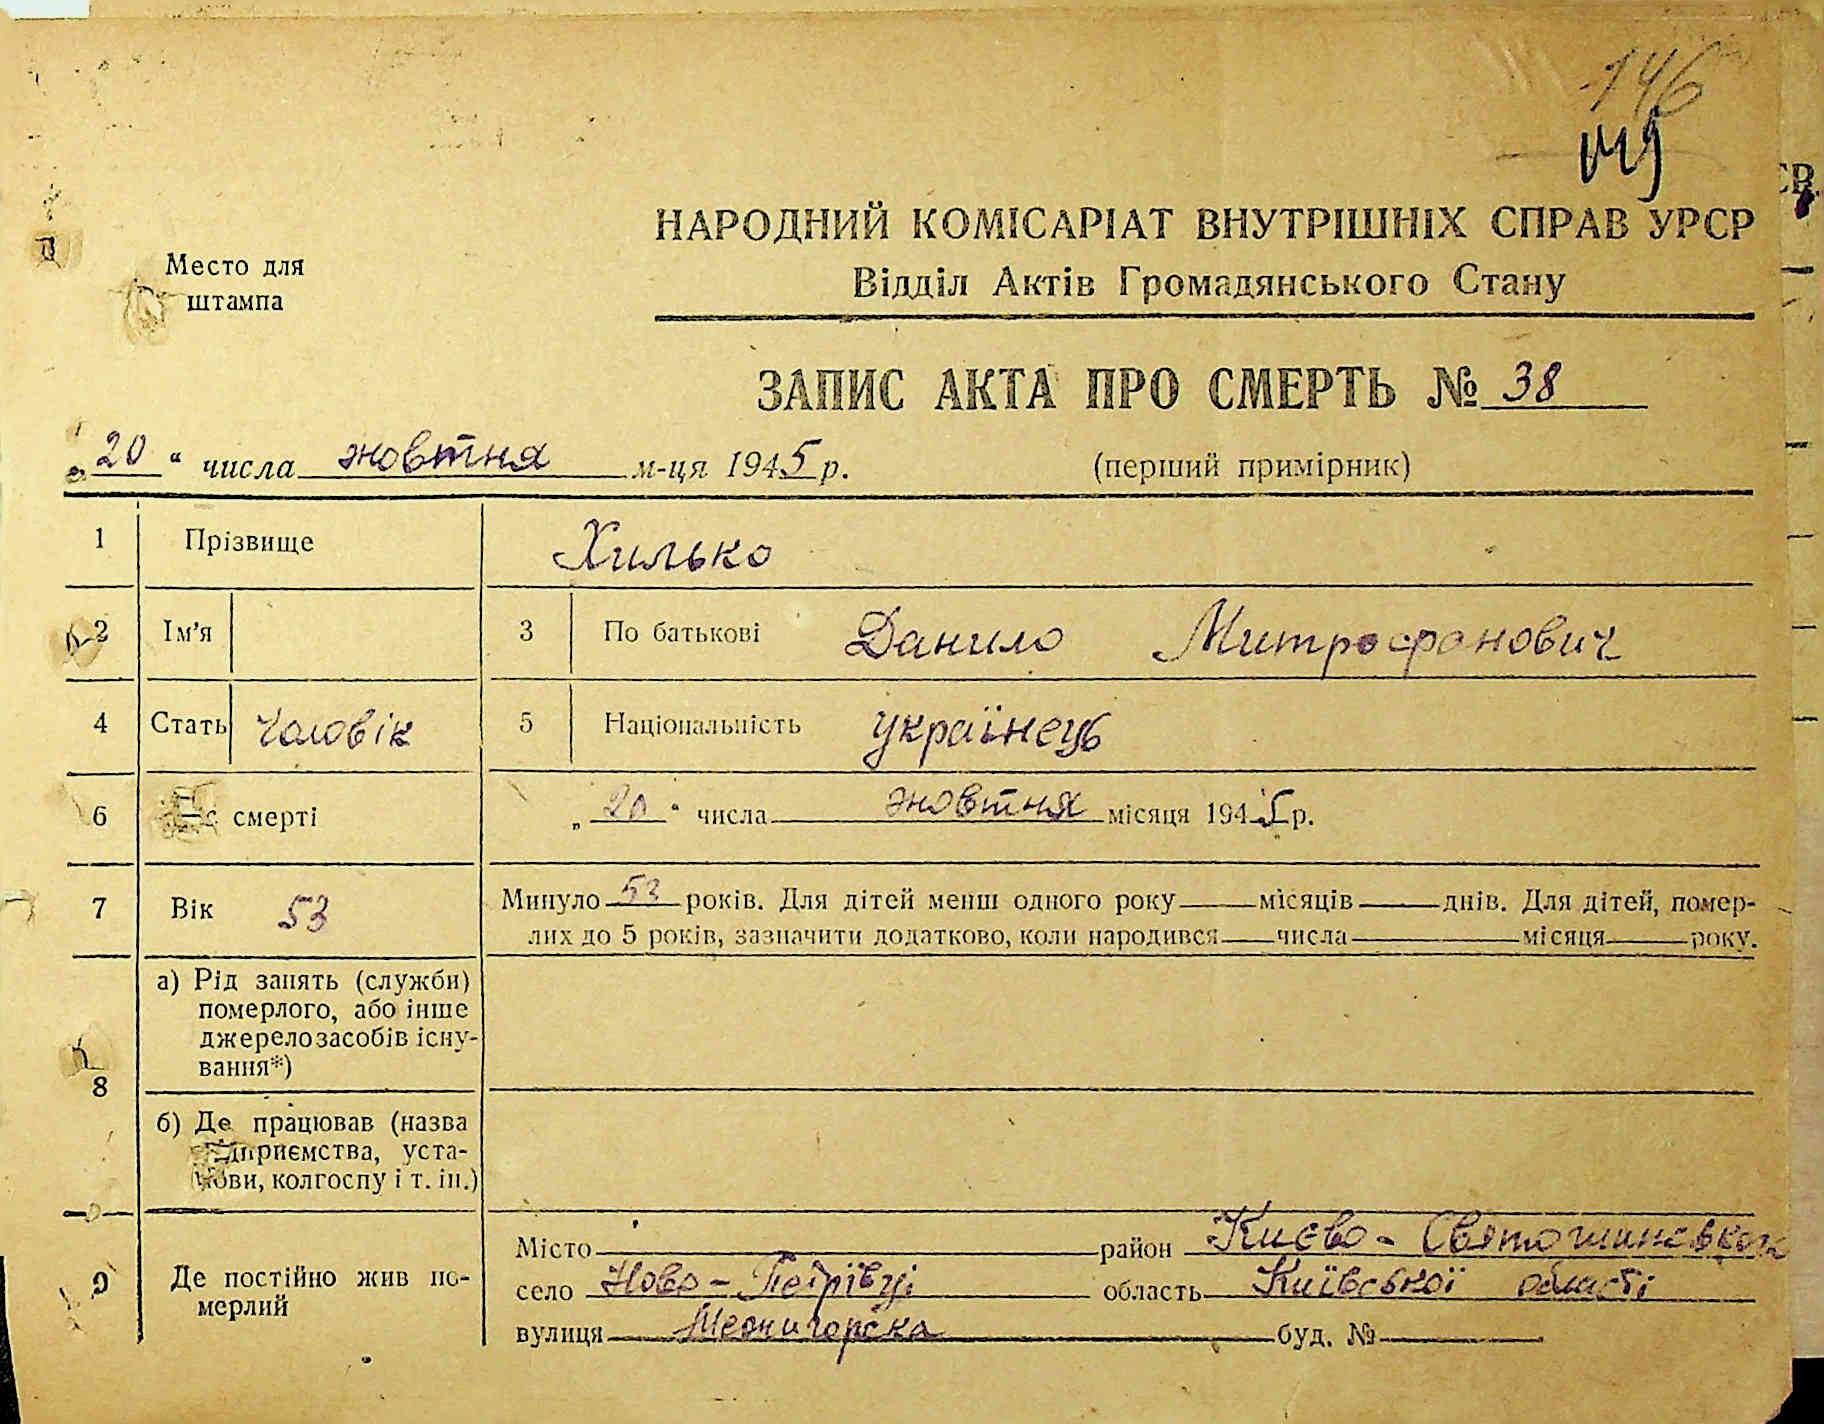 146
НАРОДНИЙ КОМІСАРІАТ ВНУТРІШНІХ СПРАВ УРСР
Відділ Актів Громадянського Стану
Место для
штампа
ЗАПИС АКТА ПРО СМЕРТЬ № 38
„20“ числа жовтня м-ця 1945 р.
(перший примірник)
1 Прізвище Хилько
2 Ім’я 3 По батькові Данило Митрофанович
4 Стать чоловік 5 Національність українець
6 смерті „20“ числа жовтня місяця 1945 р.
7 Вік 53 Минуло 53 років. Для дітей менш одного року місяців днів. Для дітей, помер-
лих до 5 років, зазначити додатково, коли народився числа місяця року.
8 а) Рід занять (служби)
померлого, або інше
джерело засобів існу-
вання*)
б) Де працював (назва
підприємства, уста-
нови, колгоспу і т. ін.)
9 Де постійно жив по-
мерлий
Місто район Києво-Святошинсвкой
село Ново-Петрівці область Київської області
вулиця Межигорска буд. №